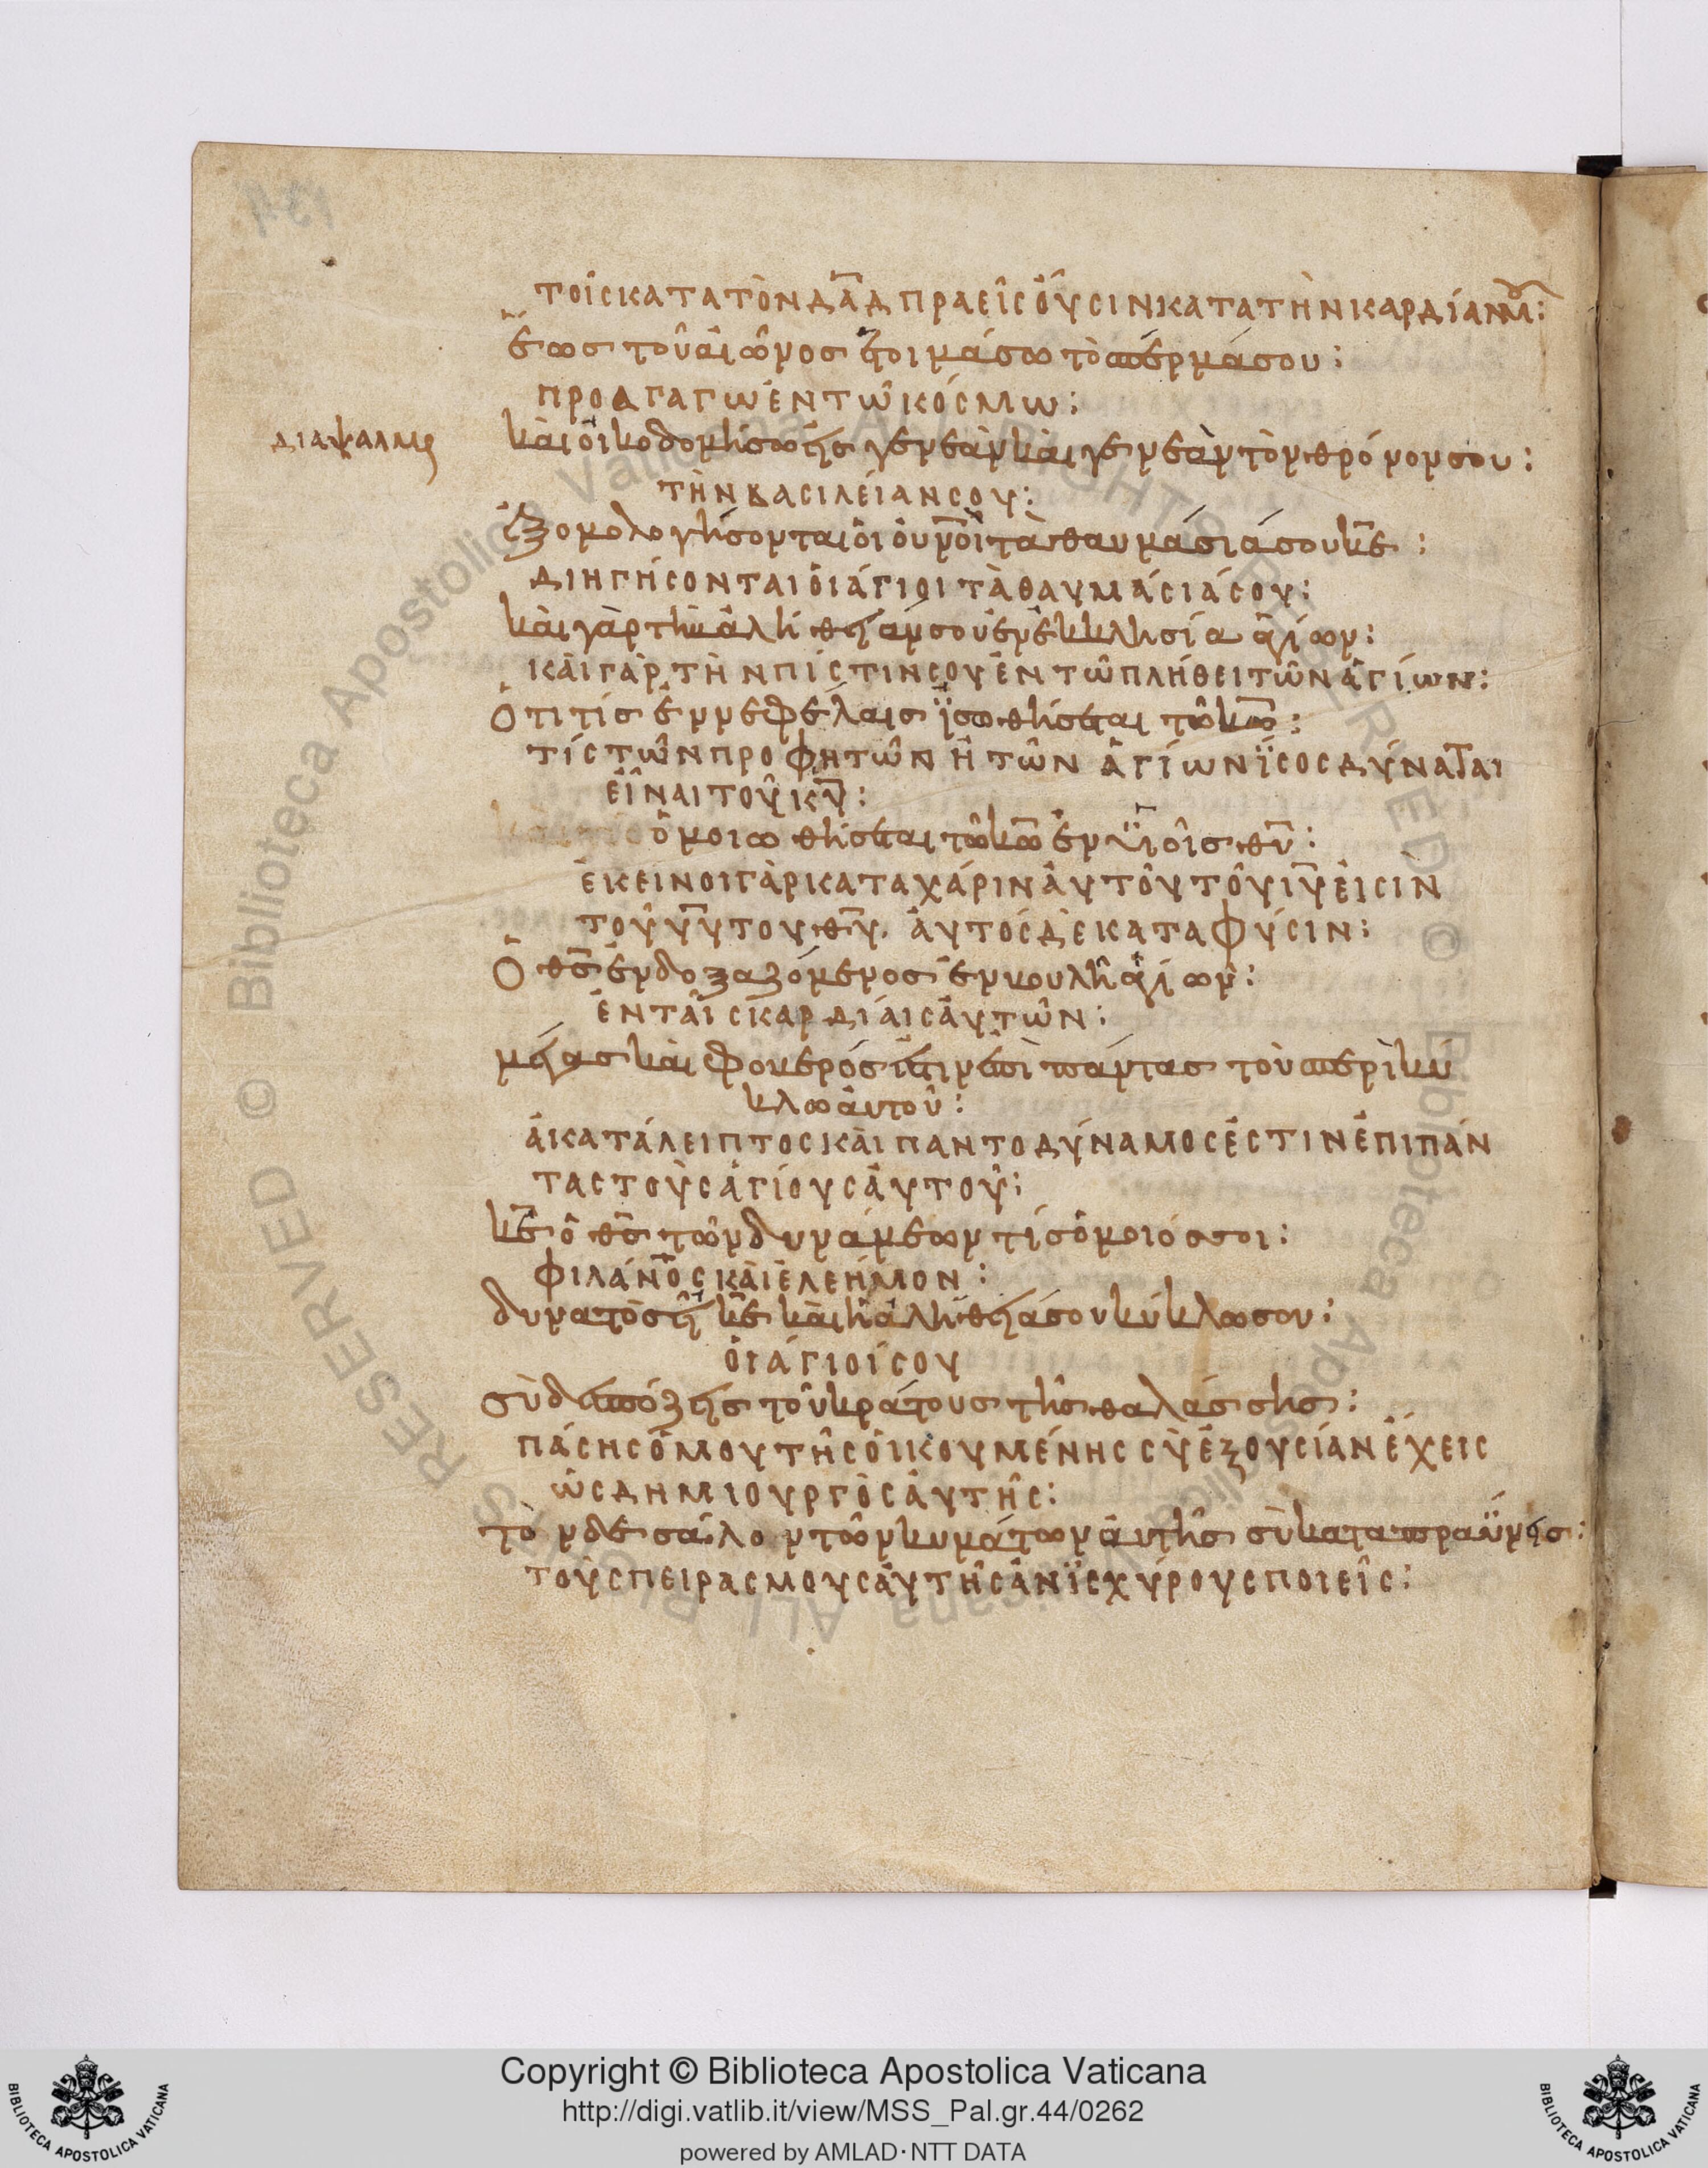 τοῖς κατὰ τὸν δᾶδ πραεῖς οὖσιν κατὰ τὴν καρδίαν μου:
ἕως τοῦ αἰῶνος ἑτοιμάσω τὸ σπέρμά σου:
προαγαγὼ ἐν τῶ κόσμω:
διάψαλμα
καὶ οἰκοδομήσω εἰς γενεὰν καὶ γενεὰν τὸν θρόνον σου:
τὴν βασιλείαν σου:
ἐξομολογήσονται οἱ οὐνοὶ τὰ θαυμάσιά σου κε:
διηγήσονται οἱ ἅγιοι τὰ θαυμάσιά σου:
καὶ γὰρ τὴν ἀλήθειάν σου ἐν ἐκκλησία ἁγίων:
καὶ γὰρ τὴν πίστιν σου ἐν τῶ πλήθει τῶν ἁγίων:
ὅτι τίς ἐν νεφέλαις ἰσωθήσεται τῶ κω:
τίς τῶν προφητῶν ἢ τῶν ἁγίων ἴσος δύναται
εἶναι τοῦ κυ:
ὁμοιωθήσεται τῶ κω ἐν υἱοῖς θυ:
ἐκεῖνοι γὰρ κατὰ χάριν αὐτοῦ τοῦ ιυ εἰσιν
τοῦ υυ του θυ. αὐτὸς δὲ κατα φύσιν:
ὁ θς ἐνδοξαζόμενος ἐν βουλῆ ἁγίων:
ἐν ταῖς καρδίαις αὐτῶν:
μέγας καὶ φοβερός ἐστιν ἐπὶ πάντας τοὺς περὶ κύ
κλω αὐτοῦ:
ἀκατάλειπτος καὶ παντοδύναμος ἐστιν ἐπι πάν
τας τοὺς ἁγίους αὐτοῦ:
κε ὁ θς τῶν δυνάμεων τίς ὅμοιός σοι:
φιλάνος καὶ ἐλεήμον:
δυνατὸς εἶ κε καὶ ἡ ἀλήθειά σου κύκλω σου:
οἱ ἅγιοί σου
σὺ δεσπόζεις τοῦ κράτους τῆς θαλάσσης:
πάσης ὁμου τῆς οἰκουμένης σὺ ἐξουσίαν ἔχεις
ὡς δημιουργὸς αὐτῆς:
τὸν δὲ σάλον τῶν κυμάτων αὐτῆς σὺ καταπραΰνεις:
τοὺς πειρασμους αὐτῆς ἀνισχύρους ποιεῖς:
Copyright © Biblioteca Apostolica Vaticana
http://digi.vatlib.it/view/MSS_Pal.gr.44/0262
powered by AMLAD·NTT DATA